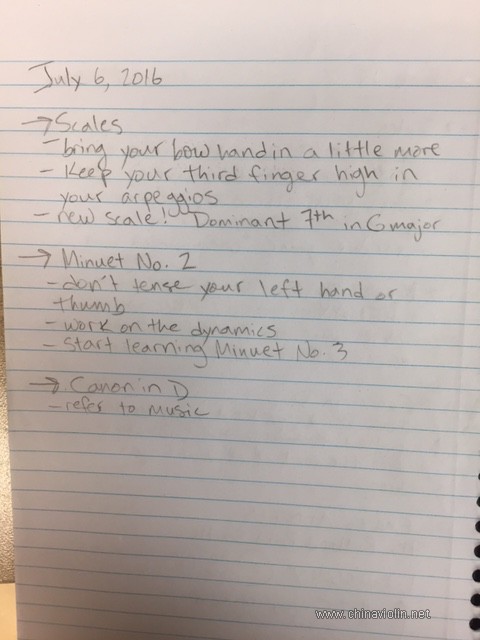 July 6, 2016
→ Scales
- bring your bow hand in a little more
- Keep your third finger high in
your arpeggios
- new scale! Dominant 7th in G major
→ Minuet No. 2
- don't tense your left hand or
thumb
- work on the dynamics
- Start learning Minuet No. 3
→ Canon in D
- refer to music
www.chinaviolin.net